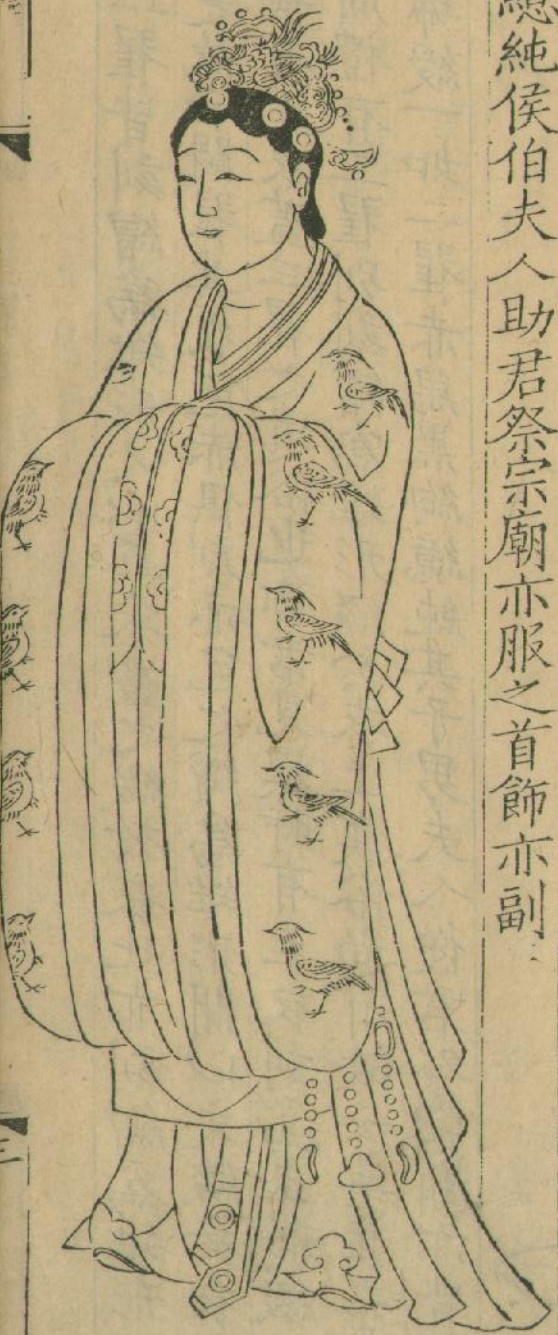 繶純侯伯夫人助君祭宗廟亦服之首飾亦副
三